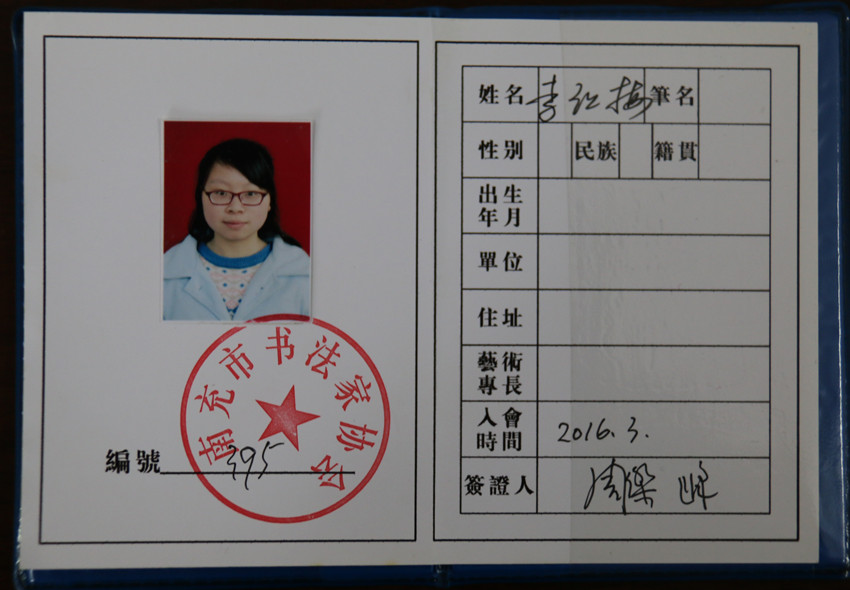 南充市书法家协会
編號 395
姓名 李红梅 筆名
性别 民族 籍貫
出生年月
單位
住址
藝術專長
入會時間 2016.3.
簽證人